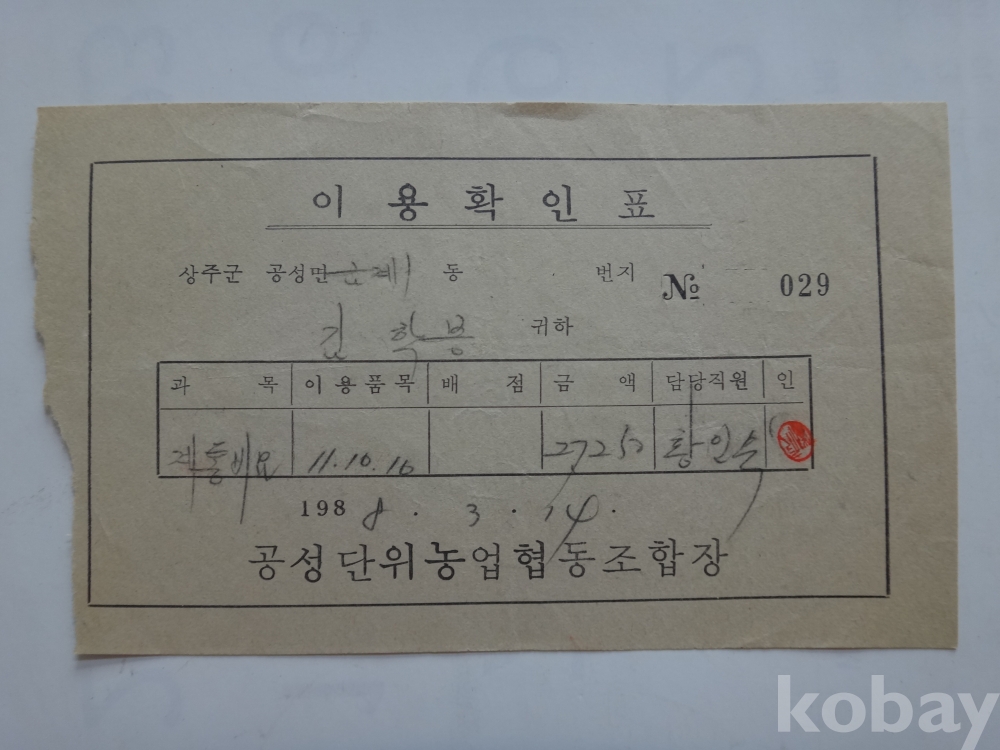 이용확인표
상주군 공성면 동 번지 № 029
김학봉 귀하
과목 이용품목 배점 금액 담당직원 인
계통비료 11.10.16 27250 황인수
1988. 3. 14.
공성단위농업협동조합장
kobay